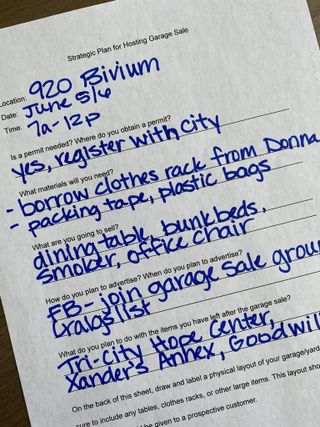 Strategic Plan for Hosting Garage Sale
Location: 920 Bivium
Date: June 5/6
Time: 7a-12p
Is a permit needed? Where do you obtain a permit?
yes, register with city
What materials will you need?
- borrow clothes rack from Donna
- packing tape, plastic bags
What are you going to sell?
dining table, bunkbeds,
smoker, office chair
How do you plan to advertise? When do you plan to advertise?
FB- join garage sale grou
Craigslist
What do you plan to do with the items you have left after the garage sale?
Tri-City Hope Center,
Xander's Annex, Goodwil
On the back of this sheet, draw and label a physical layout of your garage/yard
sure to include any tables, clothes racks, or other large items. This layout shou
be given to a prospective customer.